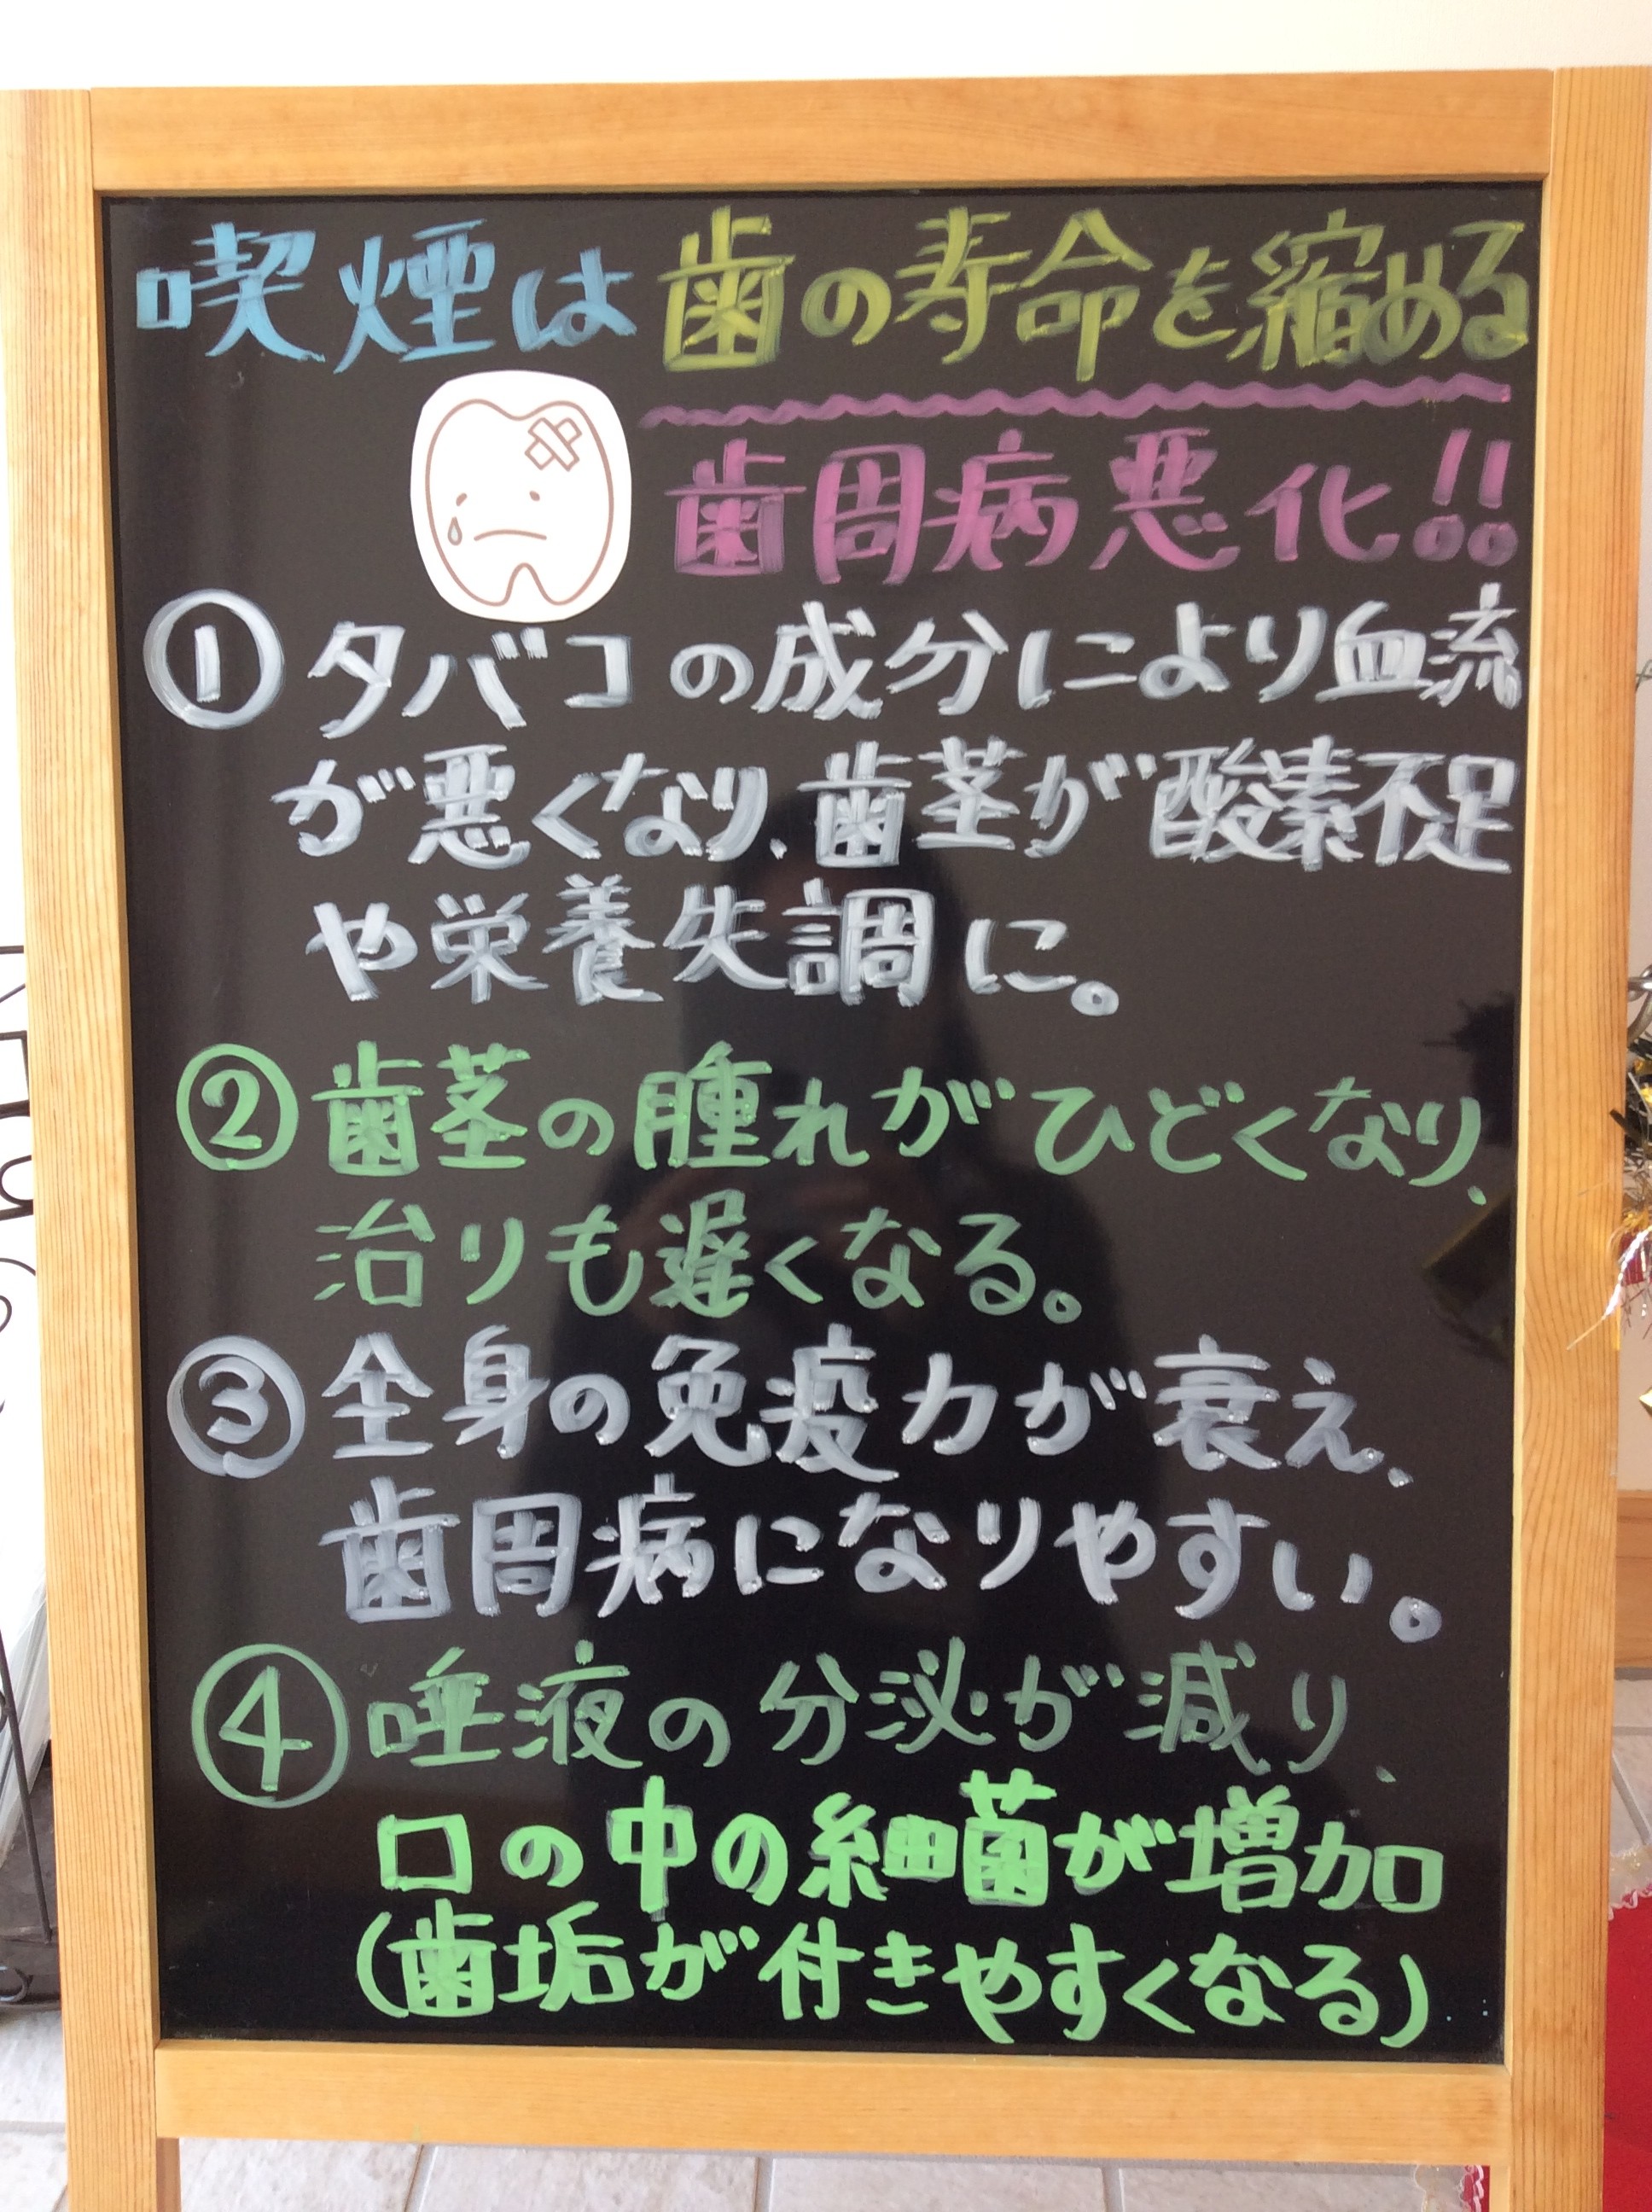 喫煙は歯の寿命を縮める
歯周病悪化!!
①タバコの成分により血流
が悪くなり、歯茎が酸素不足
や栄養失調に。
②歯茎の腫れがひどくなり、
治りも遅くなる。
③全身の免疫力が衰え、
歯周病になりやすい。
④唾液の分泌が減り、
口の中の細菌が増加
(歯垢が付きやすくなる)